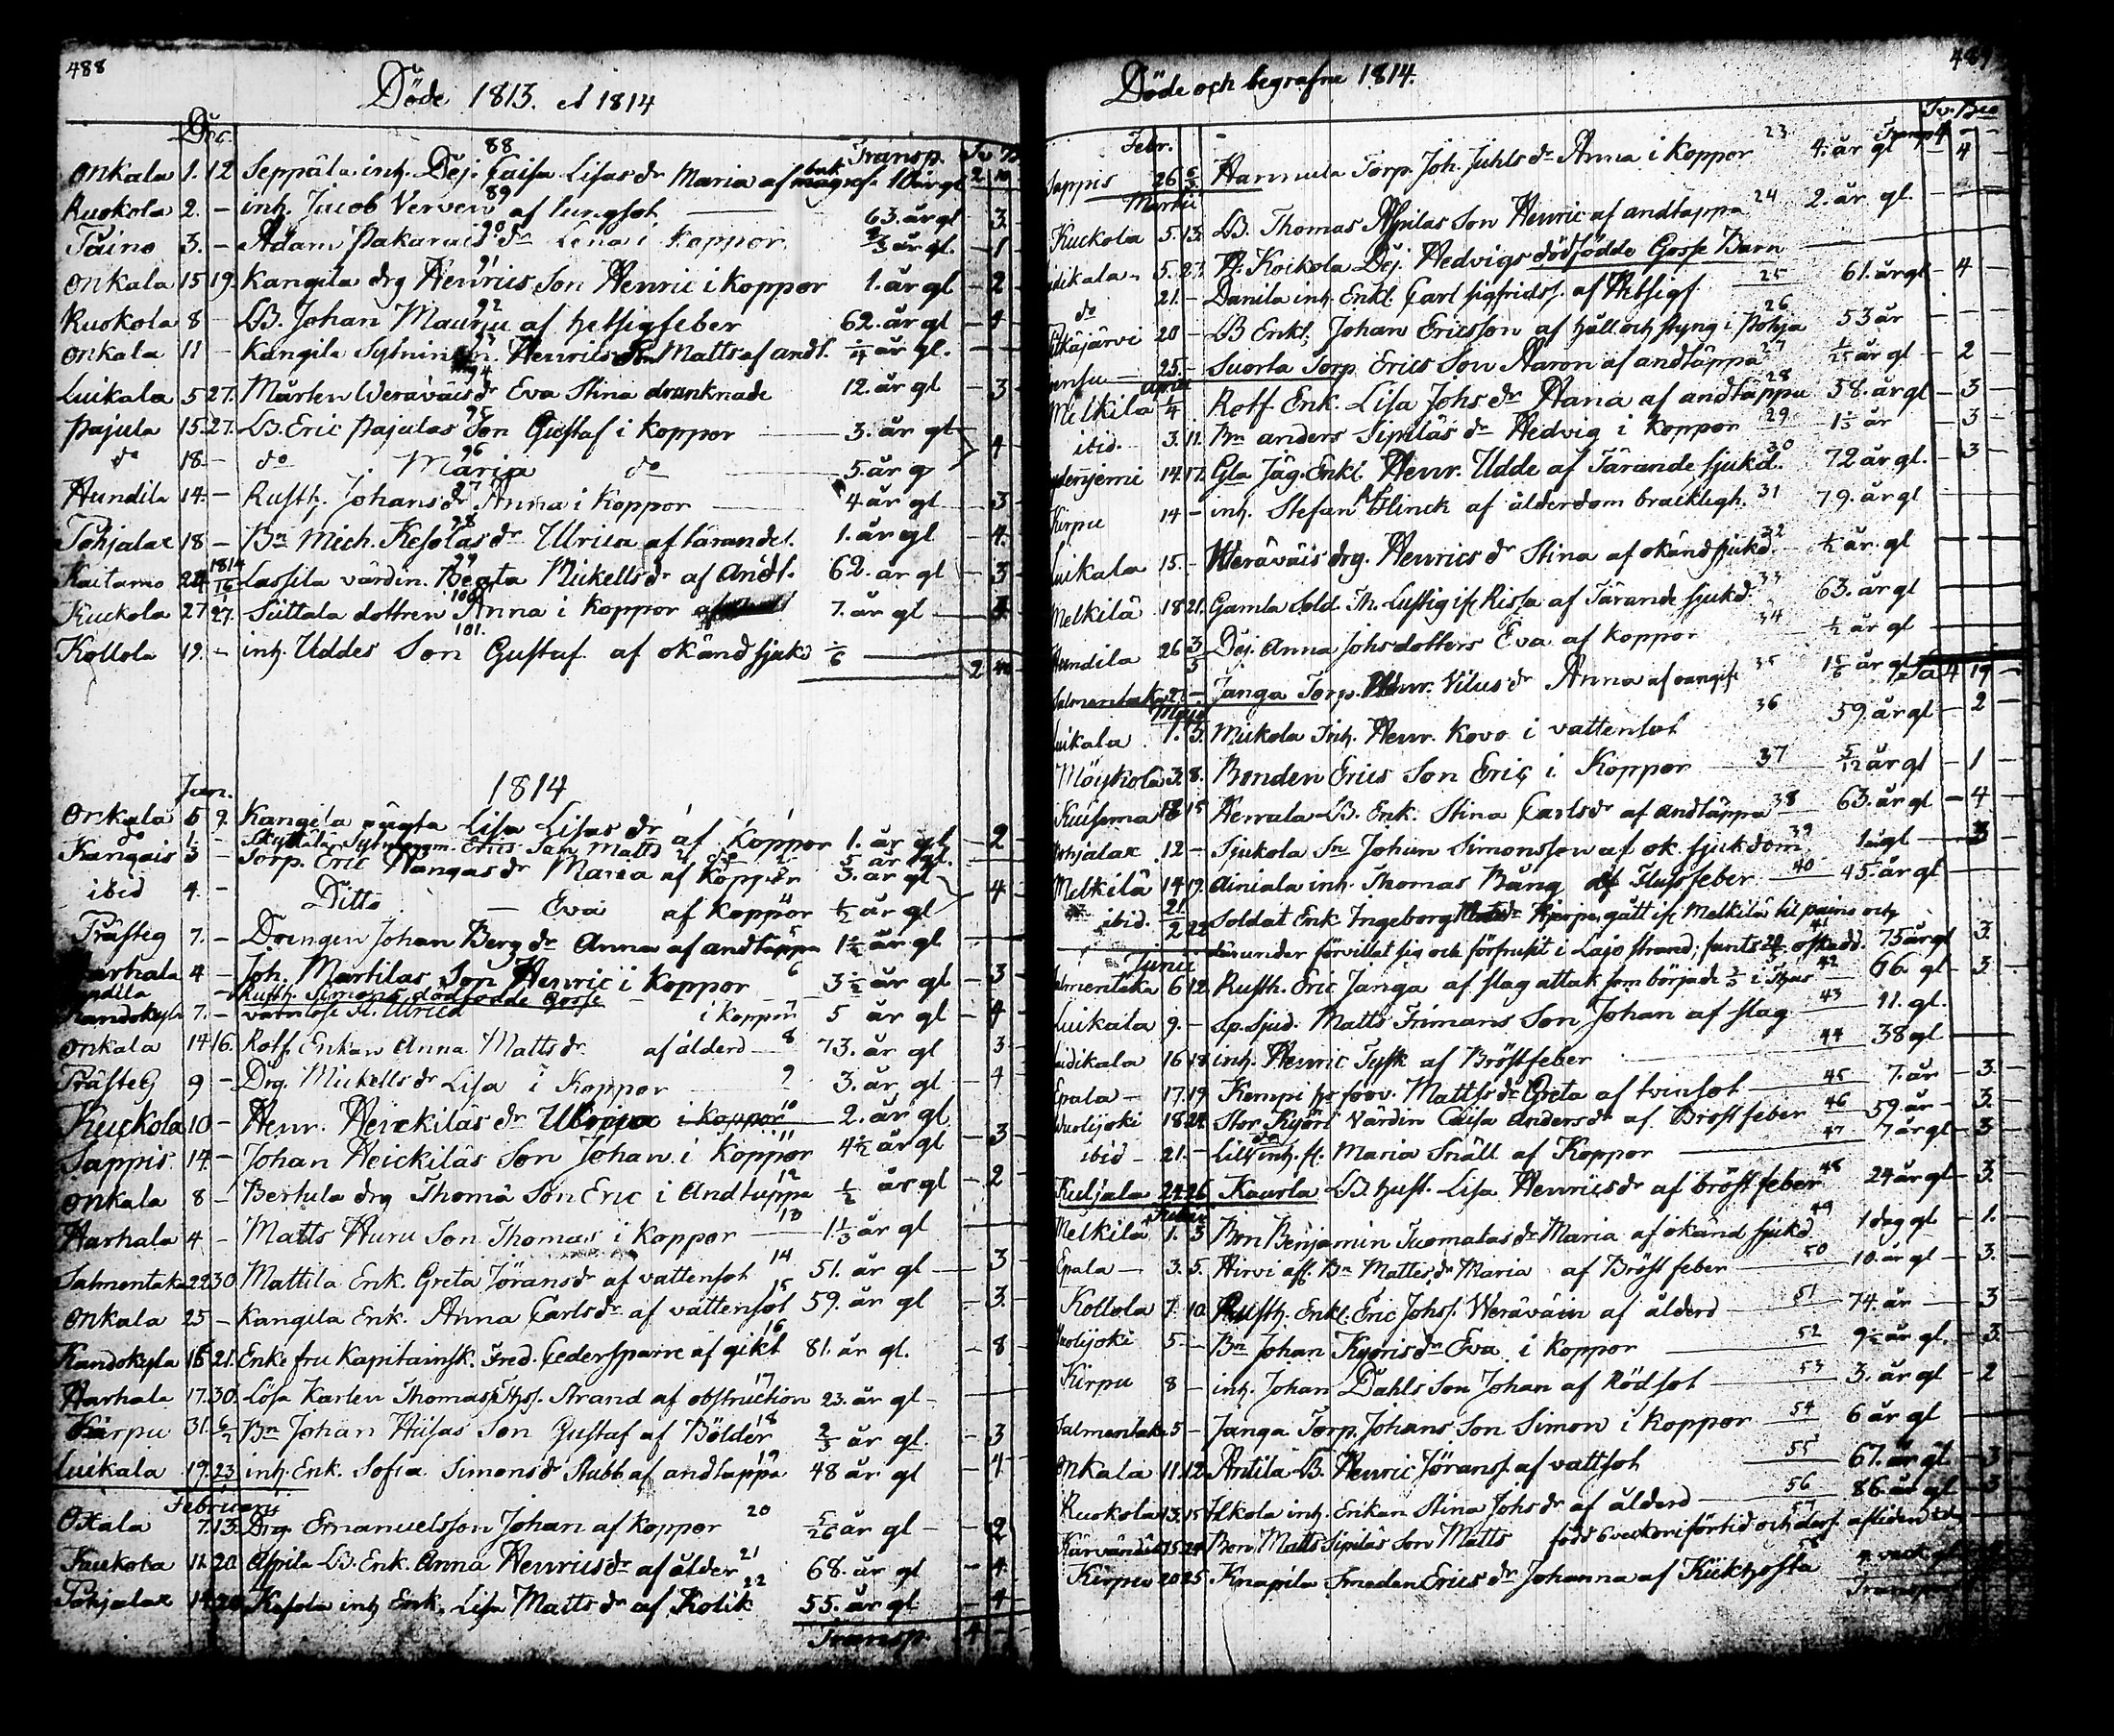 488
Döde 1813. et 1814
Dec.
88
Transp.
Onkala 1. 12 Seppäla inh. Dej. Caisa Lisas dr Maria af 1 år gl 2
89
Ruokola 2. – inh. Jacob Verven af lungsot 63. år gl 3.
Taino 3. – Adam Pakarais dr Lena i koppor år gl. 1
91
Onkala 15 19. Kangila drg Henrics Son Henric i koppor 1. år gl 2
92
Ruokola 8 – LB. Johan Mauriu af hetsigfeber 62. år gl 4
Onkala 11 – Kangila Henrics Son Matts af andt. 1/4 år gl.
94
Luikala 5 27. Mårten Weräväis dr Eva Stina drunknade 12. år gl 3
95
Pajula 15. 27. LB. Eric Pajulas Son Gustaf i koppor 3. år gl
96
do 18 – do Maria do 5. år g 4
97
Hundila 14. – Rusth. Johans dr Anna i koppor 4 år gl 3
98
Pohjalax 18 – Bn Mich. Kesolas dr Ulrica af tärande s. 1. år gl 4.
1814
99
Kaitamo 24 16/1 Lassila värdin. Beata Mickells dr af Andt. 62. år gl 3
100
Kuckola 27 27. Siittala dottren Anna i koppor 7. år gl 3
101.
Kollola 19. – inh. Uddes Son Gustaf af okänd sjukd 1/6
2 40
1814
Jan.
Onkala 5 9. Kangila pigta Lisa Lisas dr af koppor 1. år gl 2
do Erics Son Matts do år gl.
Kangais 3 – Torp. Eric Hangas dr Maria af koppor 3. år gl
ibid 4. – Ditto – Eva af koppor 1/2 år gl 4
Prästeg 7. – Drengen Johan Berg dr Anna af andtäppa 1 1/2 år gl
Harhala 4 – Joh. Martilas Son Henric i koppor 6 3 1/2 år gl 3
Rusth. Simons dödfödde Gosse
Kandokyla 7. – Ulrica i koppor 7 5 år gl 4
Onkala 14 16. Rotf. Enkan Anna Matts dr af ålderd 8 73. år gl 3.
Prästeg 9 – Drg. Mickells dr Lisa i koppor 9 3. år gl 4
Kuckola 10 – Henr. Heickiläs dr i koppor 10 2. år gl
Sappis 14 – Johan Heickiläs Son Johan i koppor 11 4 1/2 år gl 3
Onkala 8 – Bertula drg Thomä Son Eric i Andtäppa 12 1/2 år gl 2
Harhala 4 – Matts Huru Son Thomas i koppor 13 1 1/3 år gl
Salmentaka 22 30. Mattila Enk. Greta Jörans dr af vattensot 14 51. år gl 3
Onkala 25 – Kangila Enk. Anna Carls dr af vattensot 15 59. år gl 3.
Kandokyla 16 21. Enke fru Kapitainsk. Fred. Cedersparre af gikt 16 81. år gl. 8
Harhala 17. 30. Lösa Karlen Thomas Strand af obstruction 17 23. år gl
Kärpu 31. 6/2 Bn Johan Hiisas Son Gustaf af Bölder 18 2/3 år gl. 3
Luikala 19. 23. inh. Enk. Sofia Simons dr Stubb af andtäppa 19 48 år gl 4
Februarii
7. 13. Drg. Emanuelsson Johan af koppor 20 5/26 år gl 2
Kuckola 11. 20. Appila LB. Enk. Anna Henrics dr af ålder 21 68. år gl 4
Pohjalax 14 20 Kesola inh Enk. Lisa Matts dr af Kolik 22 55. år gl 4
Transp. 4
Döde och begrafne 1814.
Febr.
Transp 4
Sappis 26 6/3 Hannula Torp. Joh. Juhls dr Anna i koppor 23 4. år gl 4
Martii
Kuckola 5. 13. LB. Thomas Appilas Son Henric af andtäppa 24 2. år gl.
5. 27. Koikola Dej. Hedvigs dödfödde Gosse Barn
do 21. – Danila inh. Enkl. Carl Sigfrids s. af Hetsigf 25 61. år gl 4
Pitkäjärvi 20 – LB Enkl. Johan Ericsson af håll och styng i Pohja 26 53 år
25. – Suorta Torp. Erics Son Aaron af andtäppa 27 år gl 2
April
Melkilä 1/4 Rotf. Enk. Lisa Johs. dr Hana af andtäppa 28 58. år gl 3
ibid. 3. 11. Bn anders Sipiläs dr Hedvig i koppor 29 1 1/2 år 3
14 17. Gla Jäg. Enkl. Henr. Udde af Tärande sjukd. 30 72 år gl. 3
Kirpu 14 – inh. Stefan Flinck af ålderdom bräckligh. 31 79. år gl
Luikala 15. – Weräväis drg. Henrics dr Stina af okänd sjukd. 32 1/2 år. gl
Melkilä 18 21. Gamla Sold. Th. Lustig ifr Rissa af Tärande sjukd 33 63. år gl
Hundila 26 3/5 Dej. Anna Johs dotters Eva af koppor 34 1/2 år gl
Salmentaka 27. – Janga Torp. Henr. Vilus dr Anna af 35 1 5/6 år gl 4 19
Maji
Luikala 1. 5. Mickola Inh. Henr. Kovo i vattensot 36 59. år gl 2
Möyskola 3. 8. Bonden Erics Son Eric i Koppor 37 5/12 år gl 1
Kuisema 15 Herrala LB. Enk. Stina Carls dr af andtäppa 38 63. år gl 4
Pohjalax 12 – Sjukola Sn Johan Simonsson af ok. sjukdom 39 1 år gl 3
Melkilä 14 19. Ainiala inh. Thomas Bång af Flussfeber 40 45. år gl
ibid. 21/2 22 Soldat Enk Ingeborg gått ifr Melkilä til Paino och
därunder förvillat sig och förfrusit i Lajo strand; fants 75 år gl 3.
Junii
Salmentaka 6 12. Rusth. Eric Janga af slag attak som började 42 66 gl 3.
Luikala 9. – Matts Frimans Son Johan af slag 43 11. gl.
16 18. inh. Henric Tysk af Bröstfeber 44 38 gl
Epala – 17. 19 Kempi Matts dr Greta af tvinsot 45 7. år 3.
Vuolijoki 18 24 Stor Kyöri Värdin Caisa Anders dr af Bröstfeber 46 59. år 3.
ibid – 21. – inh. fl. Maria Snäll af Koppor 47 7 år gl 3
Kuljala 24. 26 Kaurla LB. hust. Lisa Henrics dr af bröstfeber 48 24 år gl 3.
Julii
Melkilä 1. 3 Bon Benjamin Tuomalas dr Maria af okänd sjukd 49 1 dag gl 1.
Epala – 3. 5. Hirvi Bn Matts dr Maria af Bröstfeber 50 10. år gl 3.
Kollola 7. 10. Rusth. Enkl. Eric Johs s. Weräväin af ålderd 51 74. år 3
Vuolijoki 5 – Bn Johan Kyöris dr Eva i koppor 52 9 1/2 år gl. 3.
Kirpu 8 – inh. Johan Dahls Son Johan af Rödsot 53 3. år gl 2
Salmentaka 5 – Janga Torp. Johans Son Simon i koppor 54 6 år gl
Onkala 11. 12 Antila LB. Henric Jörans s. af vattsot 55 67. år gl 3
Ruokola 13. 15 Ilkola inh. Enkan Stina Johs dr af ålderd 56 86. år gl 3
15 24 Bon Matts Sipiläs Son Matts född 6 veckor i förtid och deraf afliden
Kirpu 20 25 Knapila Smeden Erics dr Johanna af Kikhosta 4 veck gl
Transport